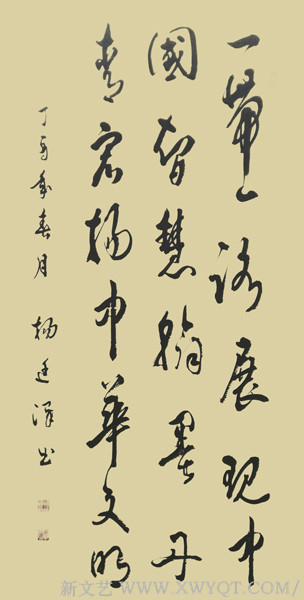 一帶一路展現中
國智慧翰墨丹
青宏揚中華文明
丁酉年春月 楊廷澤书
新文艺 WWW.XWYQT.COM/